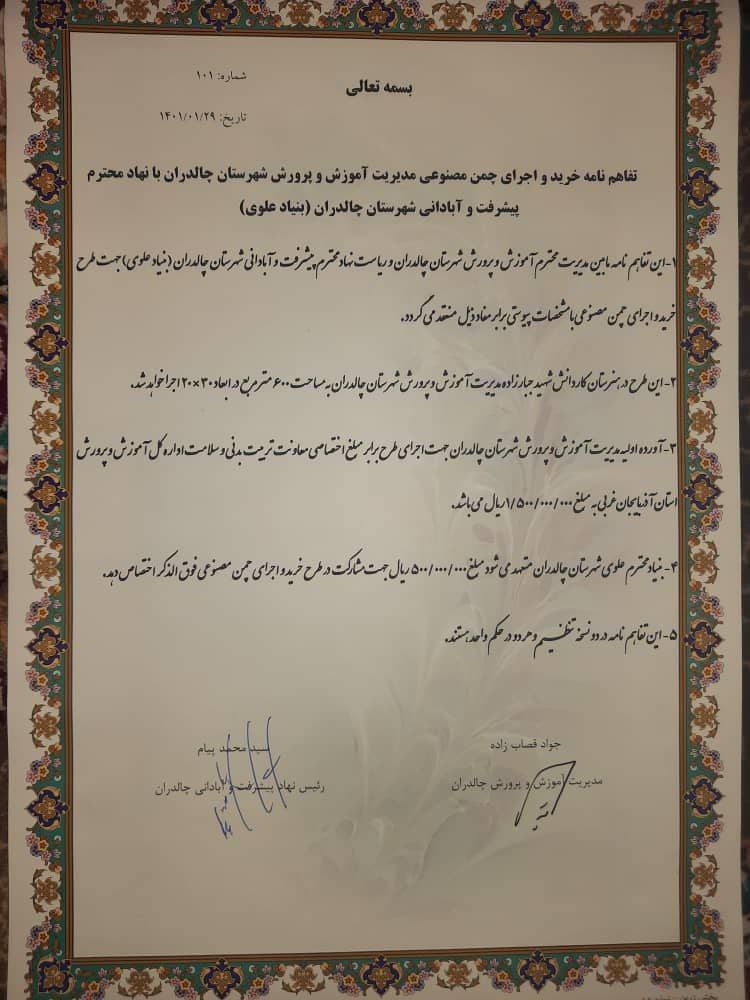 بسمه تعالی
شماره: ۱۰۱
تاریخ: ۱۴۰۱/۰۱/۲۹
تفاهم نامه خرید و اجرای چمن مصنوعی مدیریت آموزش و پرورش شهرستان چالدران با نهاد محترم
پیشرفت و آبادانی شهرستان چالدران (بنیاد علوی)
۱- این تفاهم نامه مابین مدیریت محترم آموزش و پرورش شهرستان چالدران و ریاست نهاد محترم پیشرفت و آبادانی شهرستان چالدران (بنیاد علوی) جهت طرح
خرید و اجرای چمن مصنوعی با مشخصات پیوستی برابر مفاد ذیل منعقد می گردد.
۲- این طرح در هنرستان کاردانش شهید جبارزاده مدیریت آموزش و پرورش شهرستان چالدران به مساحت ۶۰۰ متر مربع در ابعاد ۳۰×۲۰ اجرا خواهد شد.
۳- آورده اولیه مدیریت آموزش و پرورش شهرستان چالدران جهت اجرای طرح برابر مبلغ اختصاصی معاونت تربیت بدنی و سلامت اداره کل آموزش و پرورش
استان آذربایجان غربی به مبلغ ۱/۵۰۰/۰۰۰/۰۰۰ ریال می باشد.
۴- بنیاد محترم علوی شهرستان چالدران متعهد می شود مبلغ ۵۰۰/۰۰۰/۰۰۰ ریال جهت مشارکت در طرح خرید و اجرای چمن مصنوعی فوق الذکر اختصاص دهد.
۵- این تفاهم نامه در دو نسخه تنظیم و هر دو در حکم واحد هستند.
جواد قصاب زاده
مدیریت آموزش و پرورش چالدران
سید محمد پیام
رئیس نهاد پیشرفت و آبادانی چالدران